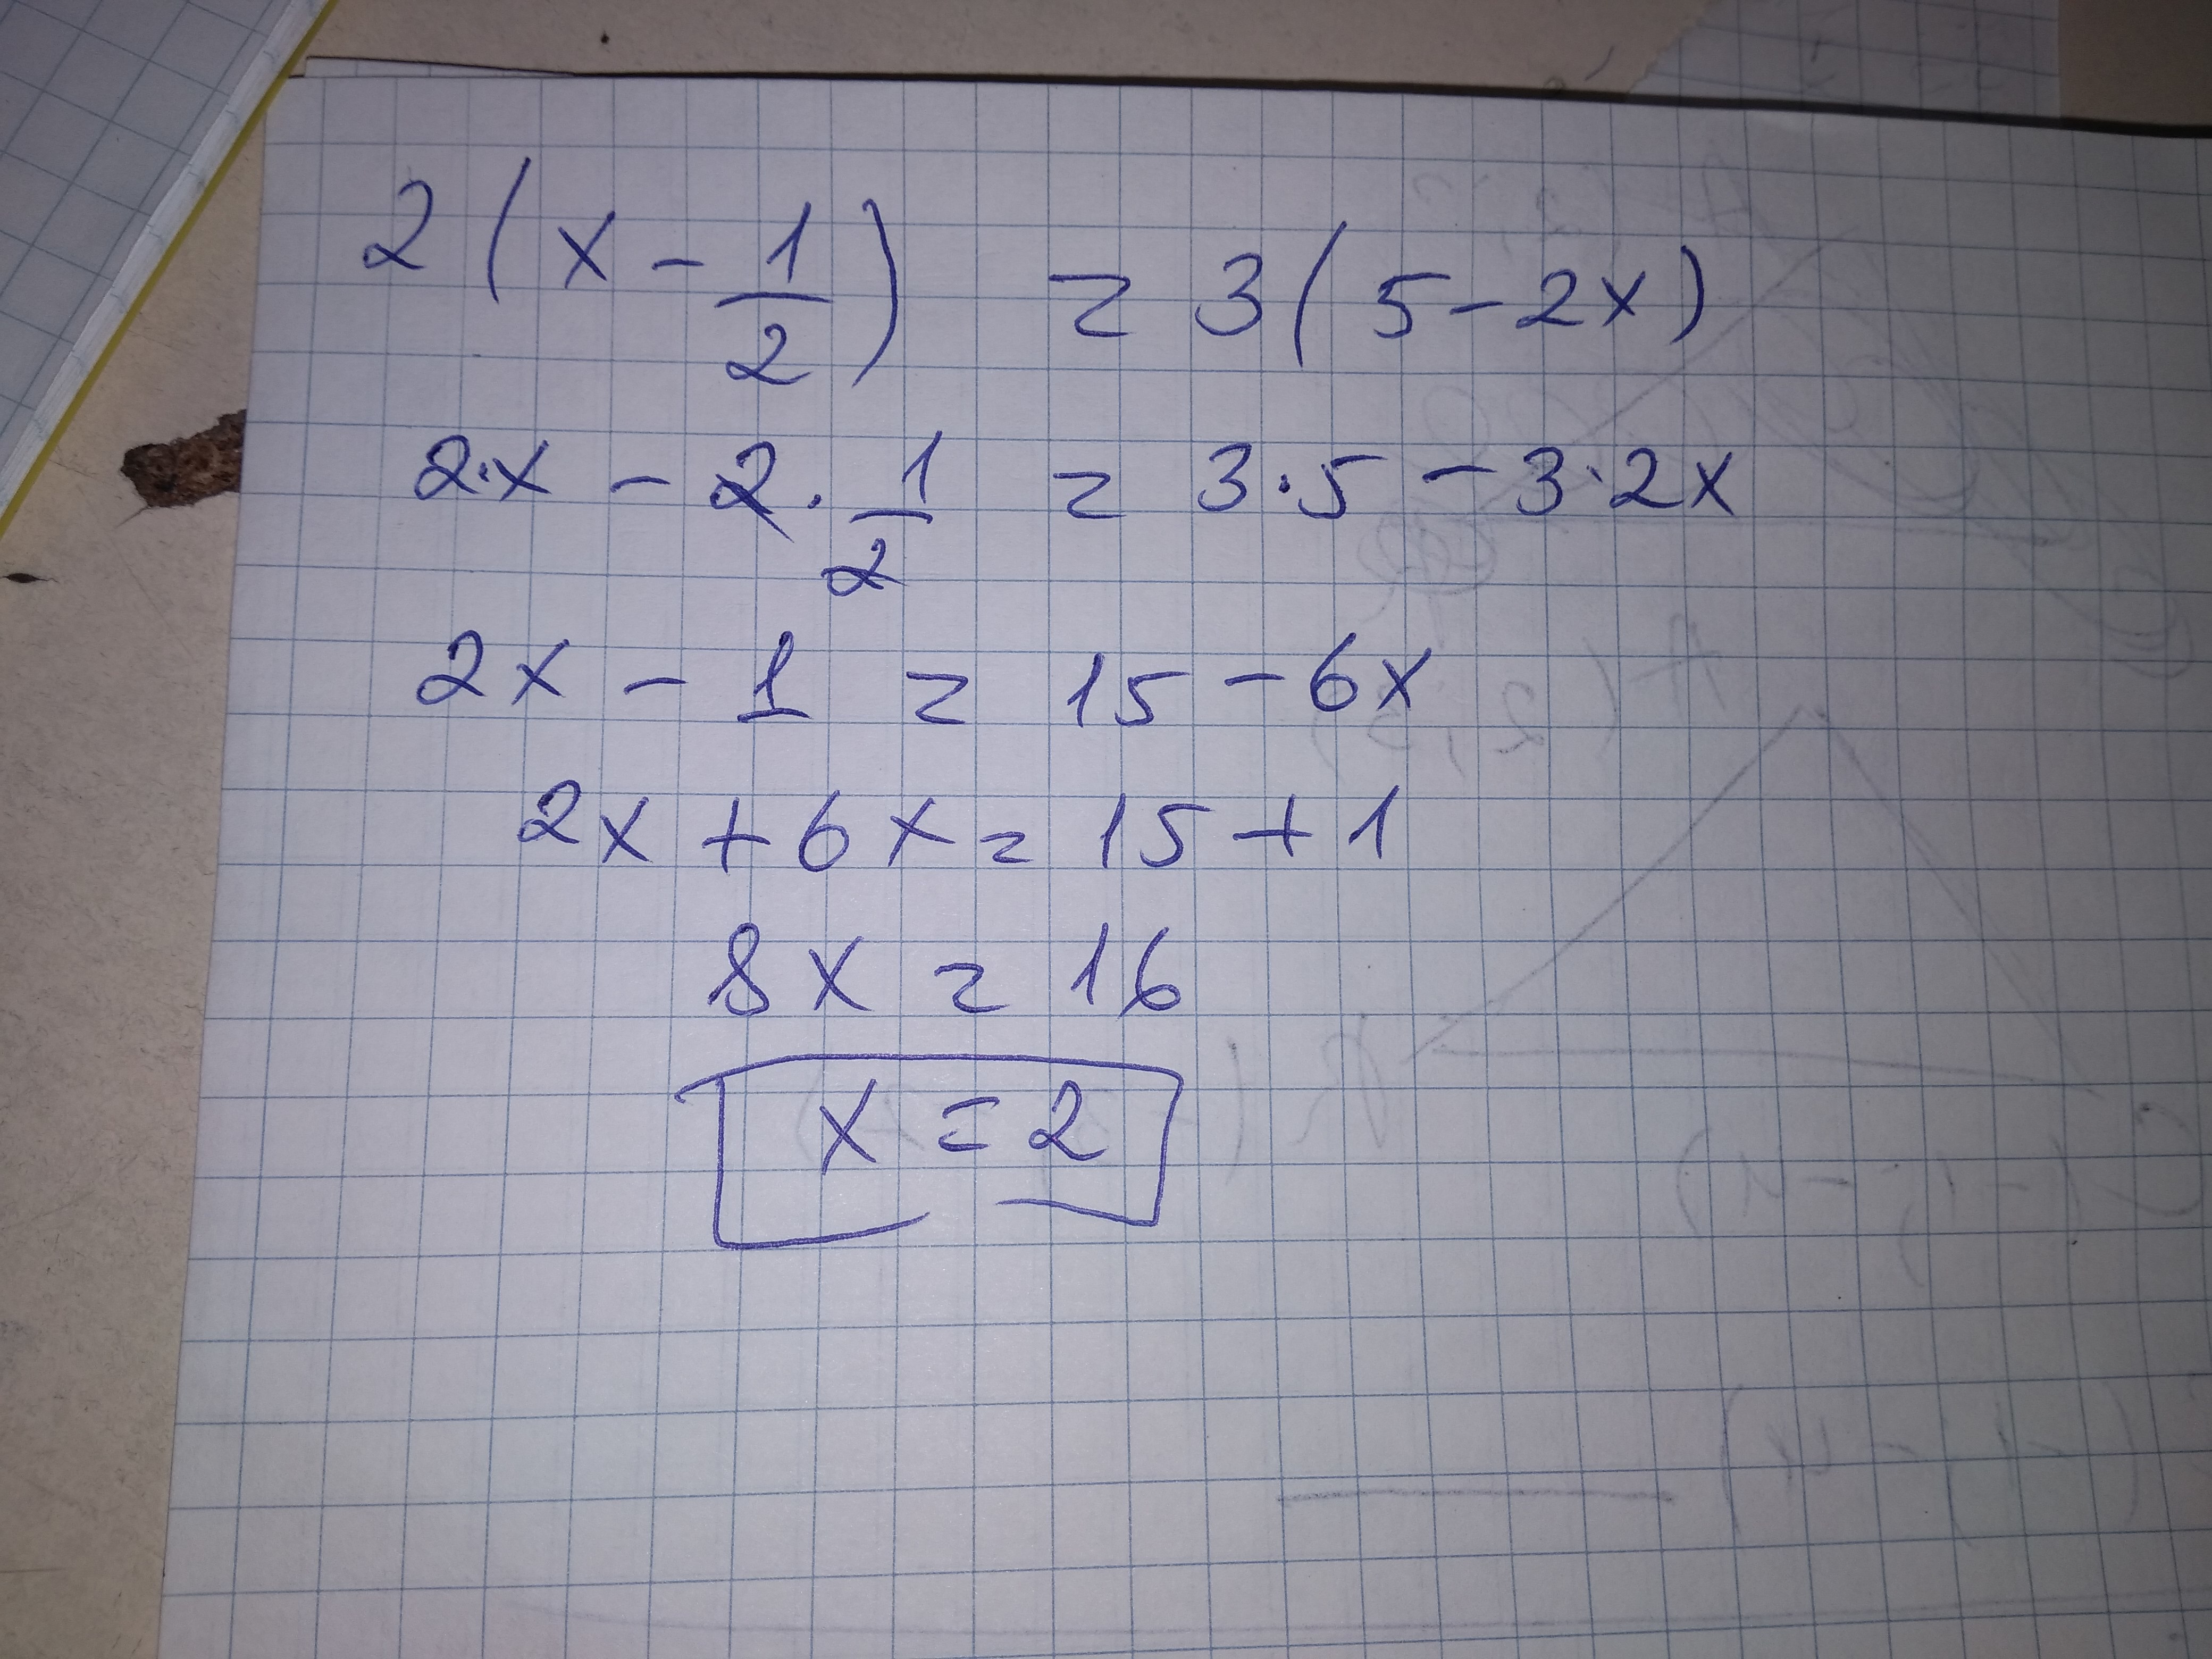 2(x - 1/2) = 3(5 - 2x)
2·x - 2·1/2 = 3·5 - 3·2x
2x - 1 = 15 - 6x
2x + 6x = 15 + 1
8x = 16
x = 2